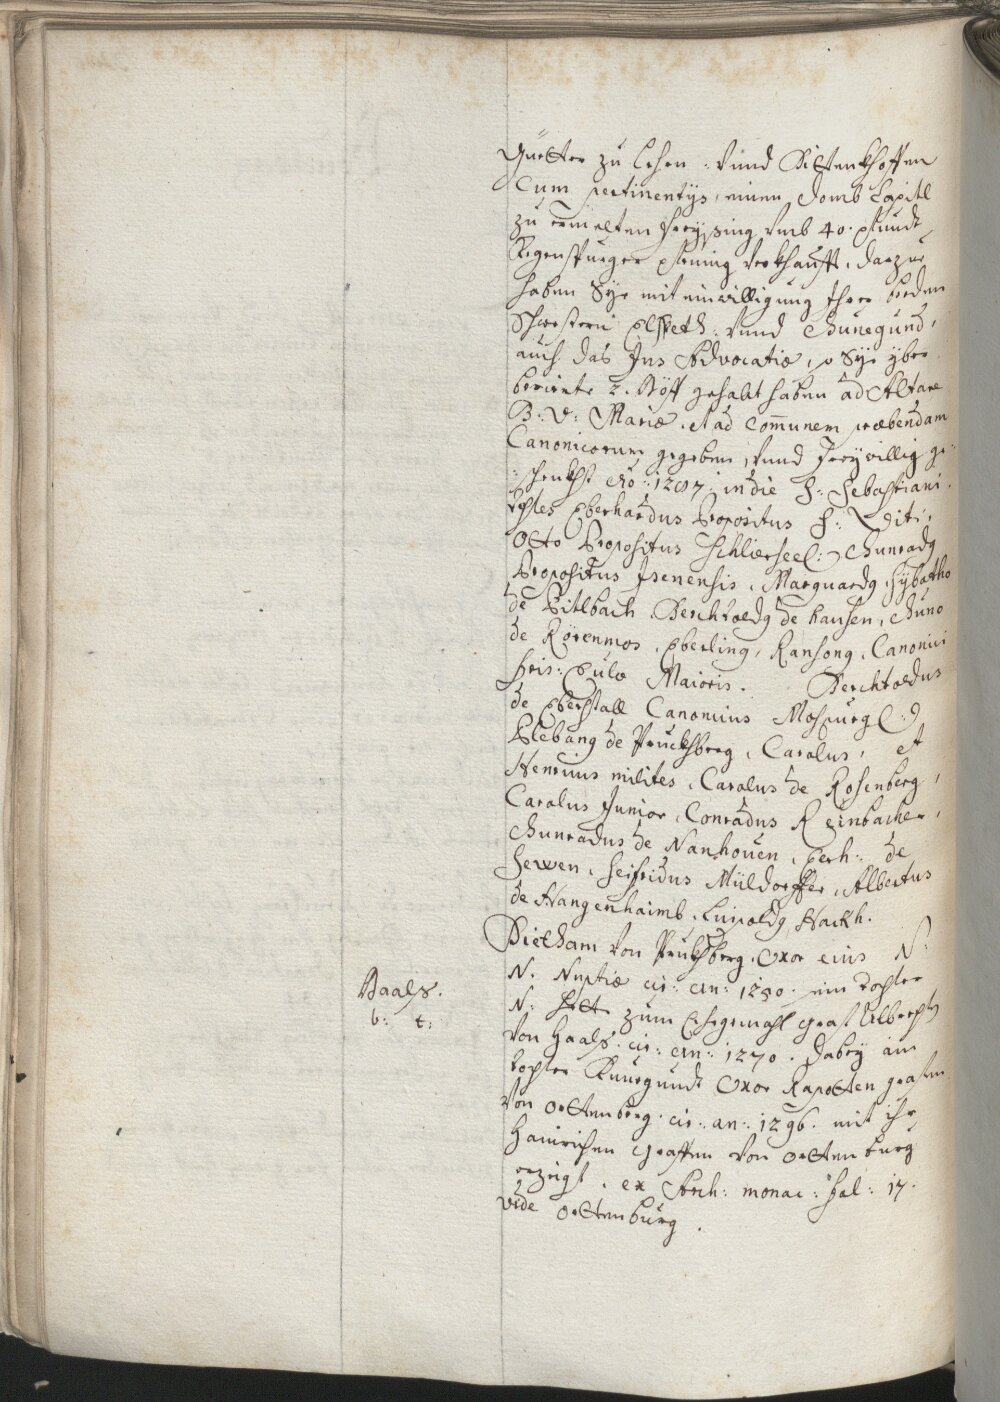 Güetter zu Lehen. Vnnd Dietenkhoffen
Cum pertinentijs, einen Domb Capitl
zu ermelten Freysing vmb 40. pfundt
Regenspurger pfening verkhaufft, darzue
haben Sye mit einwilligung Ihrer beeden
Schwestern Elspeth: Vnnd Chunegund,
auch das Jus Advocatiæ, so Sye yber
berierte 2. Höff gehabt haben ad Altare
B: V: Mariæ. et ad Com̄unem præbendam
Canonicorum gegeben, Vnnd Freywillig ge:
:schenckht Aō: 1297. in die S: Sebastiani.
Testes Eberhardus Propositus S: Viti,
Otto Propositus Schliersee(:) Chunradg
Propositus Isenensis, Marquardg, Sybotho
de Pitlbach Berchtoldg de hausen, Chuno
de Rörenmos, Eberling, Ransong, Canonici
Fris: Eulæ Maioris. Berchtoldus
de Eberstall Canonicus Mospurg(:)
Plebang de Pruckhberg, Carolus, et
Henricus milites, Carolus de Rosenberg,
Carolus Junior, Conradus Reinbacher,
Chunradus de Nanhouen, Perh: de
Sewen, Seifridus Müldorffer, Albertus
de Hangenhaimb, Luipoldg Hackh.
Dietham von Prukhberg. Vxor eius N:
N. Nuptiæ cir: an: 1250. ein Tochter
Haals. N: hett zum Ehegemahl Graf Albrecht
b: t: von Haals. cir: an: 1270. dabey ain
tochter Kunegundt Vxor Rapotten grafen
von Ortenberg. cir: an: 1296. mit ihr
Hainrichen Graffen von Ortenburg
erzeigt. ex Arch: monac: fol: 17.
vide Ortenburg.